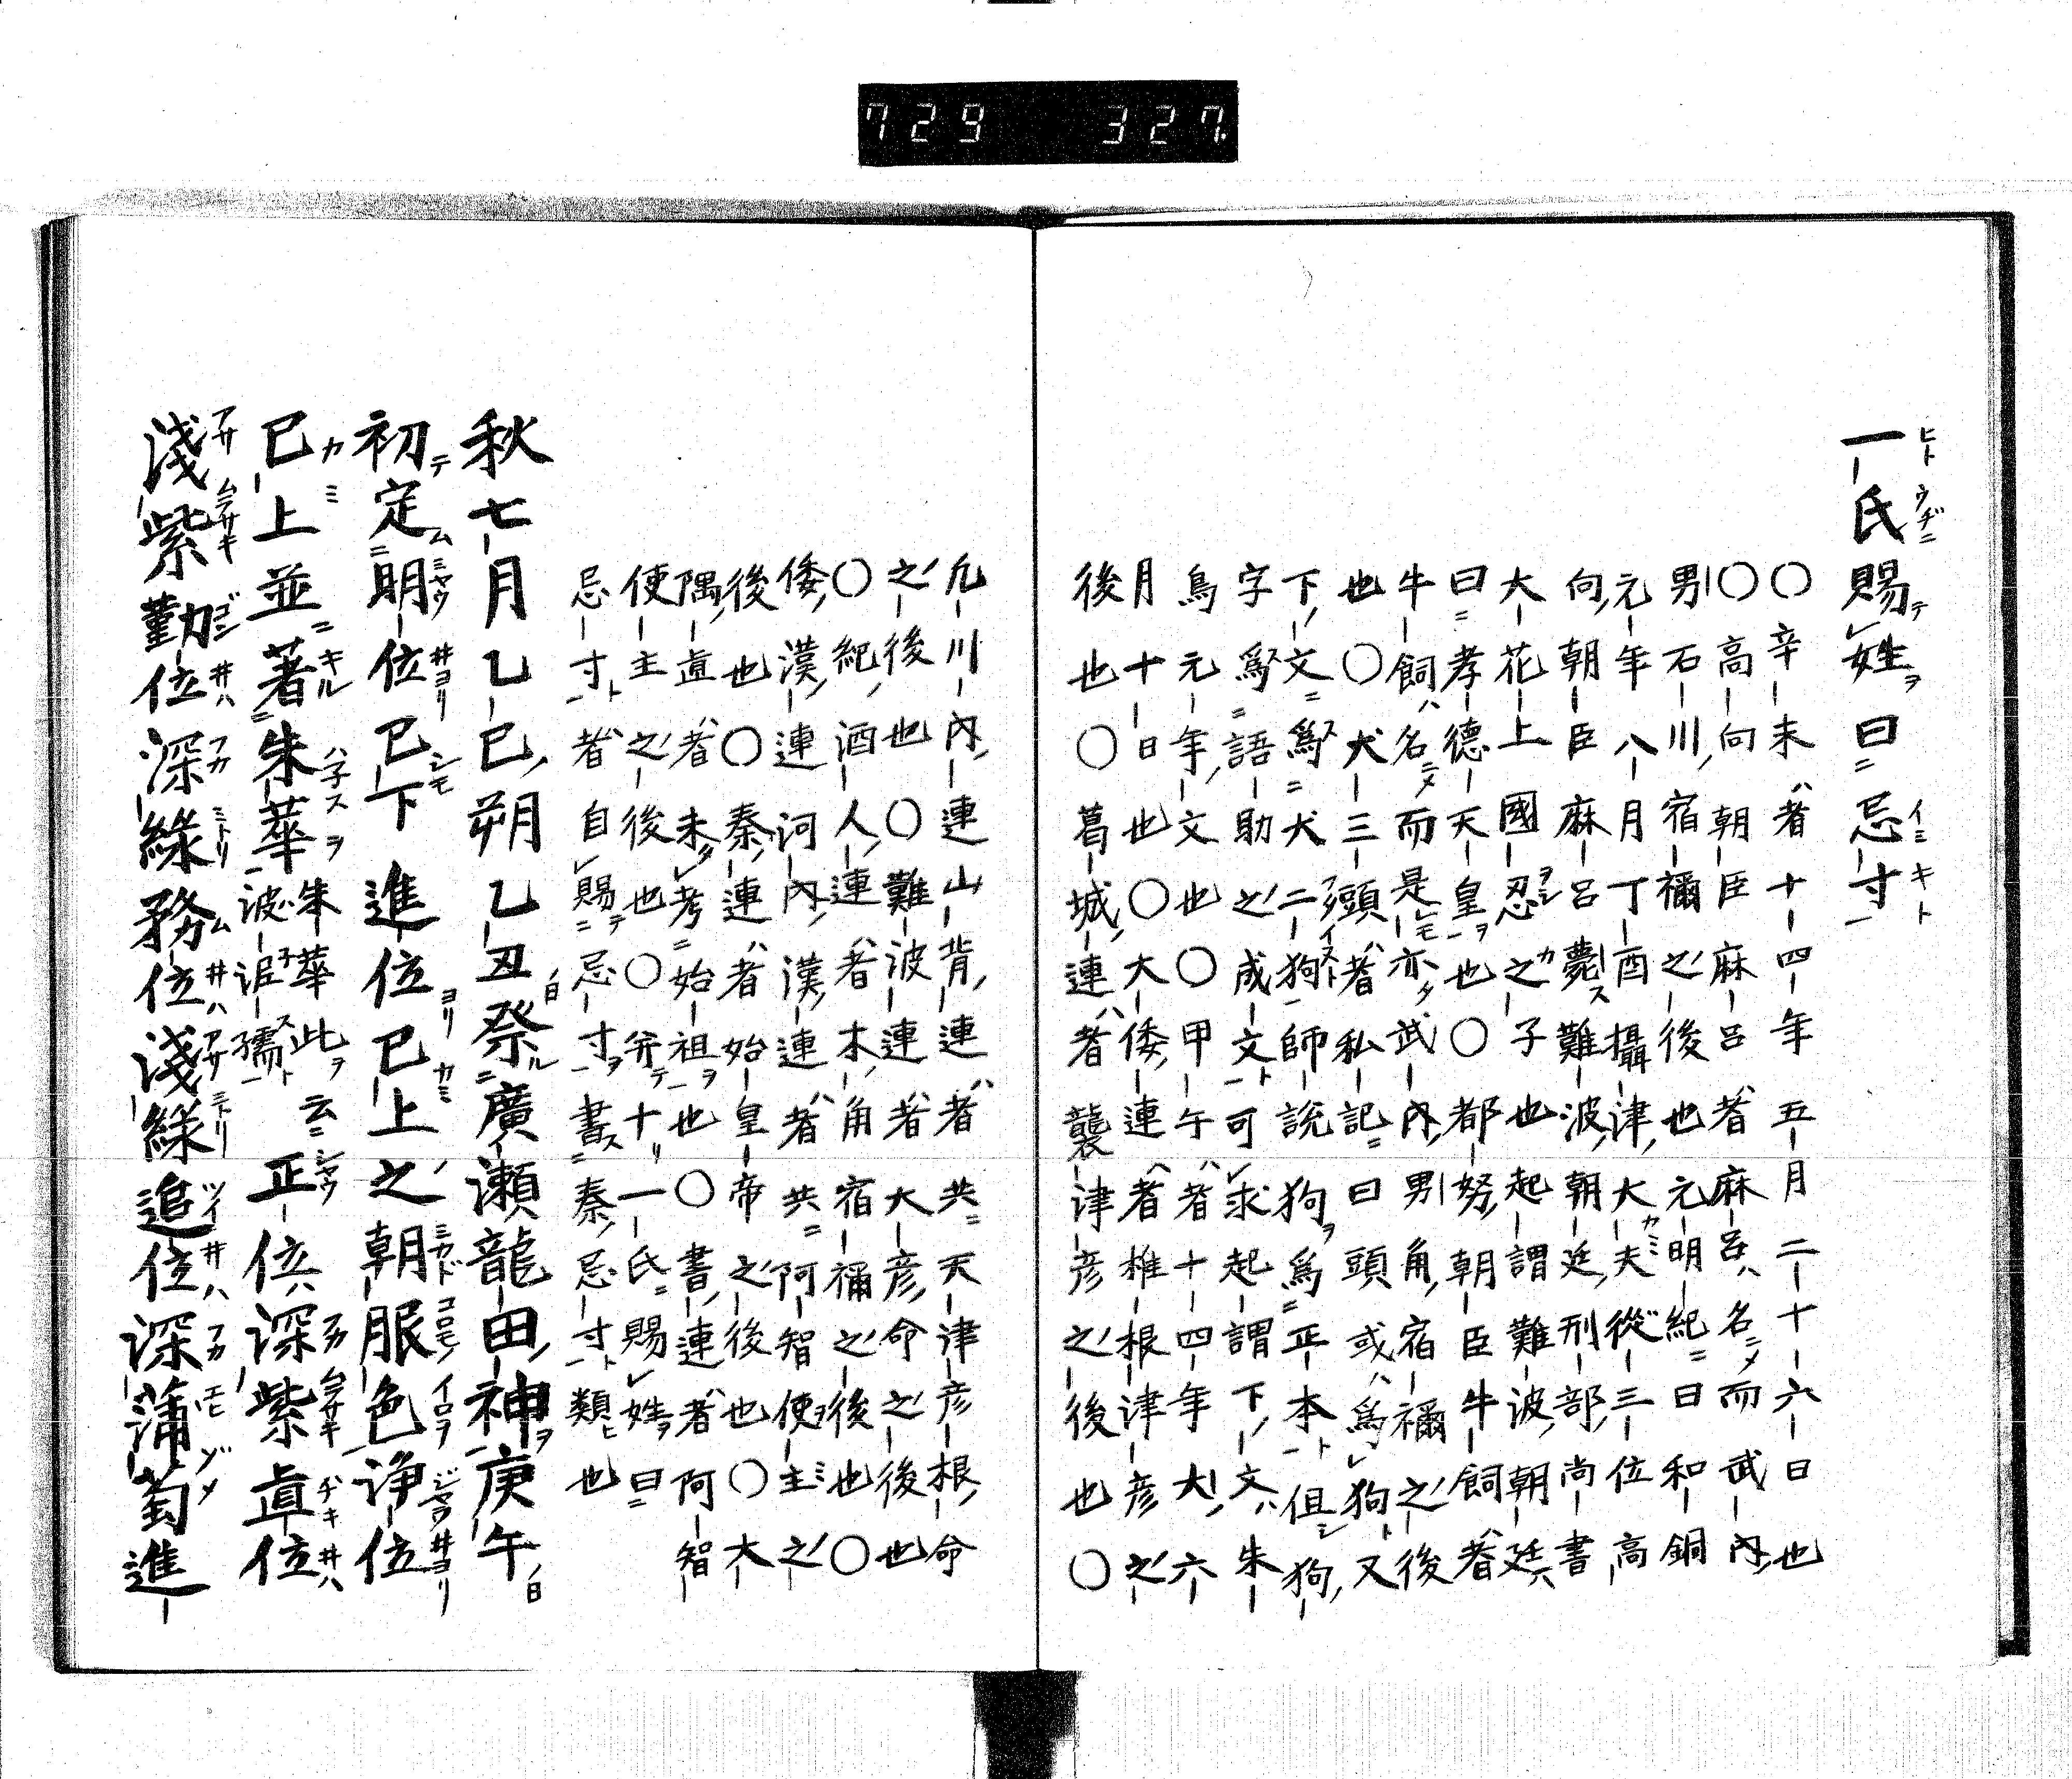 729 327.
一氏賜姓曰忌寸
〇辛未者十四年五月二十六日也
〇高向朝臣麻呂者麻呂名而武内
男石川宿禰之後也元明紀曰和銅
元年八月丁酉攝津大夫從三位高
向朝臣麻呂薨難波朝廷刑部尚書
大花上國忍之子也起謂難波朝廷
曰孝德天皇也〇都努朝臣牛飼者
牛飼名而是亦武内男角宿禰之後
也〇犬三頭者私記曰頭或爲狗又
下文爲犬二狗師説狗爲正本但狗
字爲語助之成文可求起謂下文朱
鳥元年文也〇甲午者十四年大六
月十日也〇大倭連者椎根津彦之
後也〇葛城連者襲津彦之後也〇
凢川内連山背連者共天津彦根命
之後也〇難波連者大彦命之後也
〇紀酒人連者木角宿禰之後也〇
倭漢連河内漢連者共阿智使主之
後也〇秦連者始皇帝之後也〇大
隅直者未考始祖也〇書連者阿智
使主之後也〇并十一氏賜姓曰
忌寸者自賜忌寸書秦忌寸類也
秋七月乙巳朔乙丑祭廣瀬龍田神庚午
初定明位已下進位已上之朝服色淨位
已上並著朱華朱華此云波泥孺正位深紫直位
淺紫勤位深綠務位淺綠追位深蒲萄進